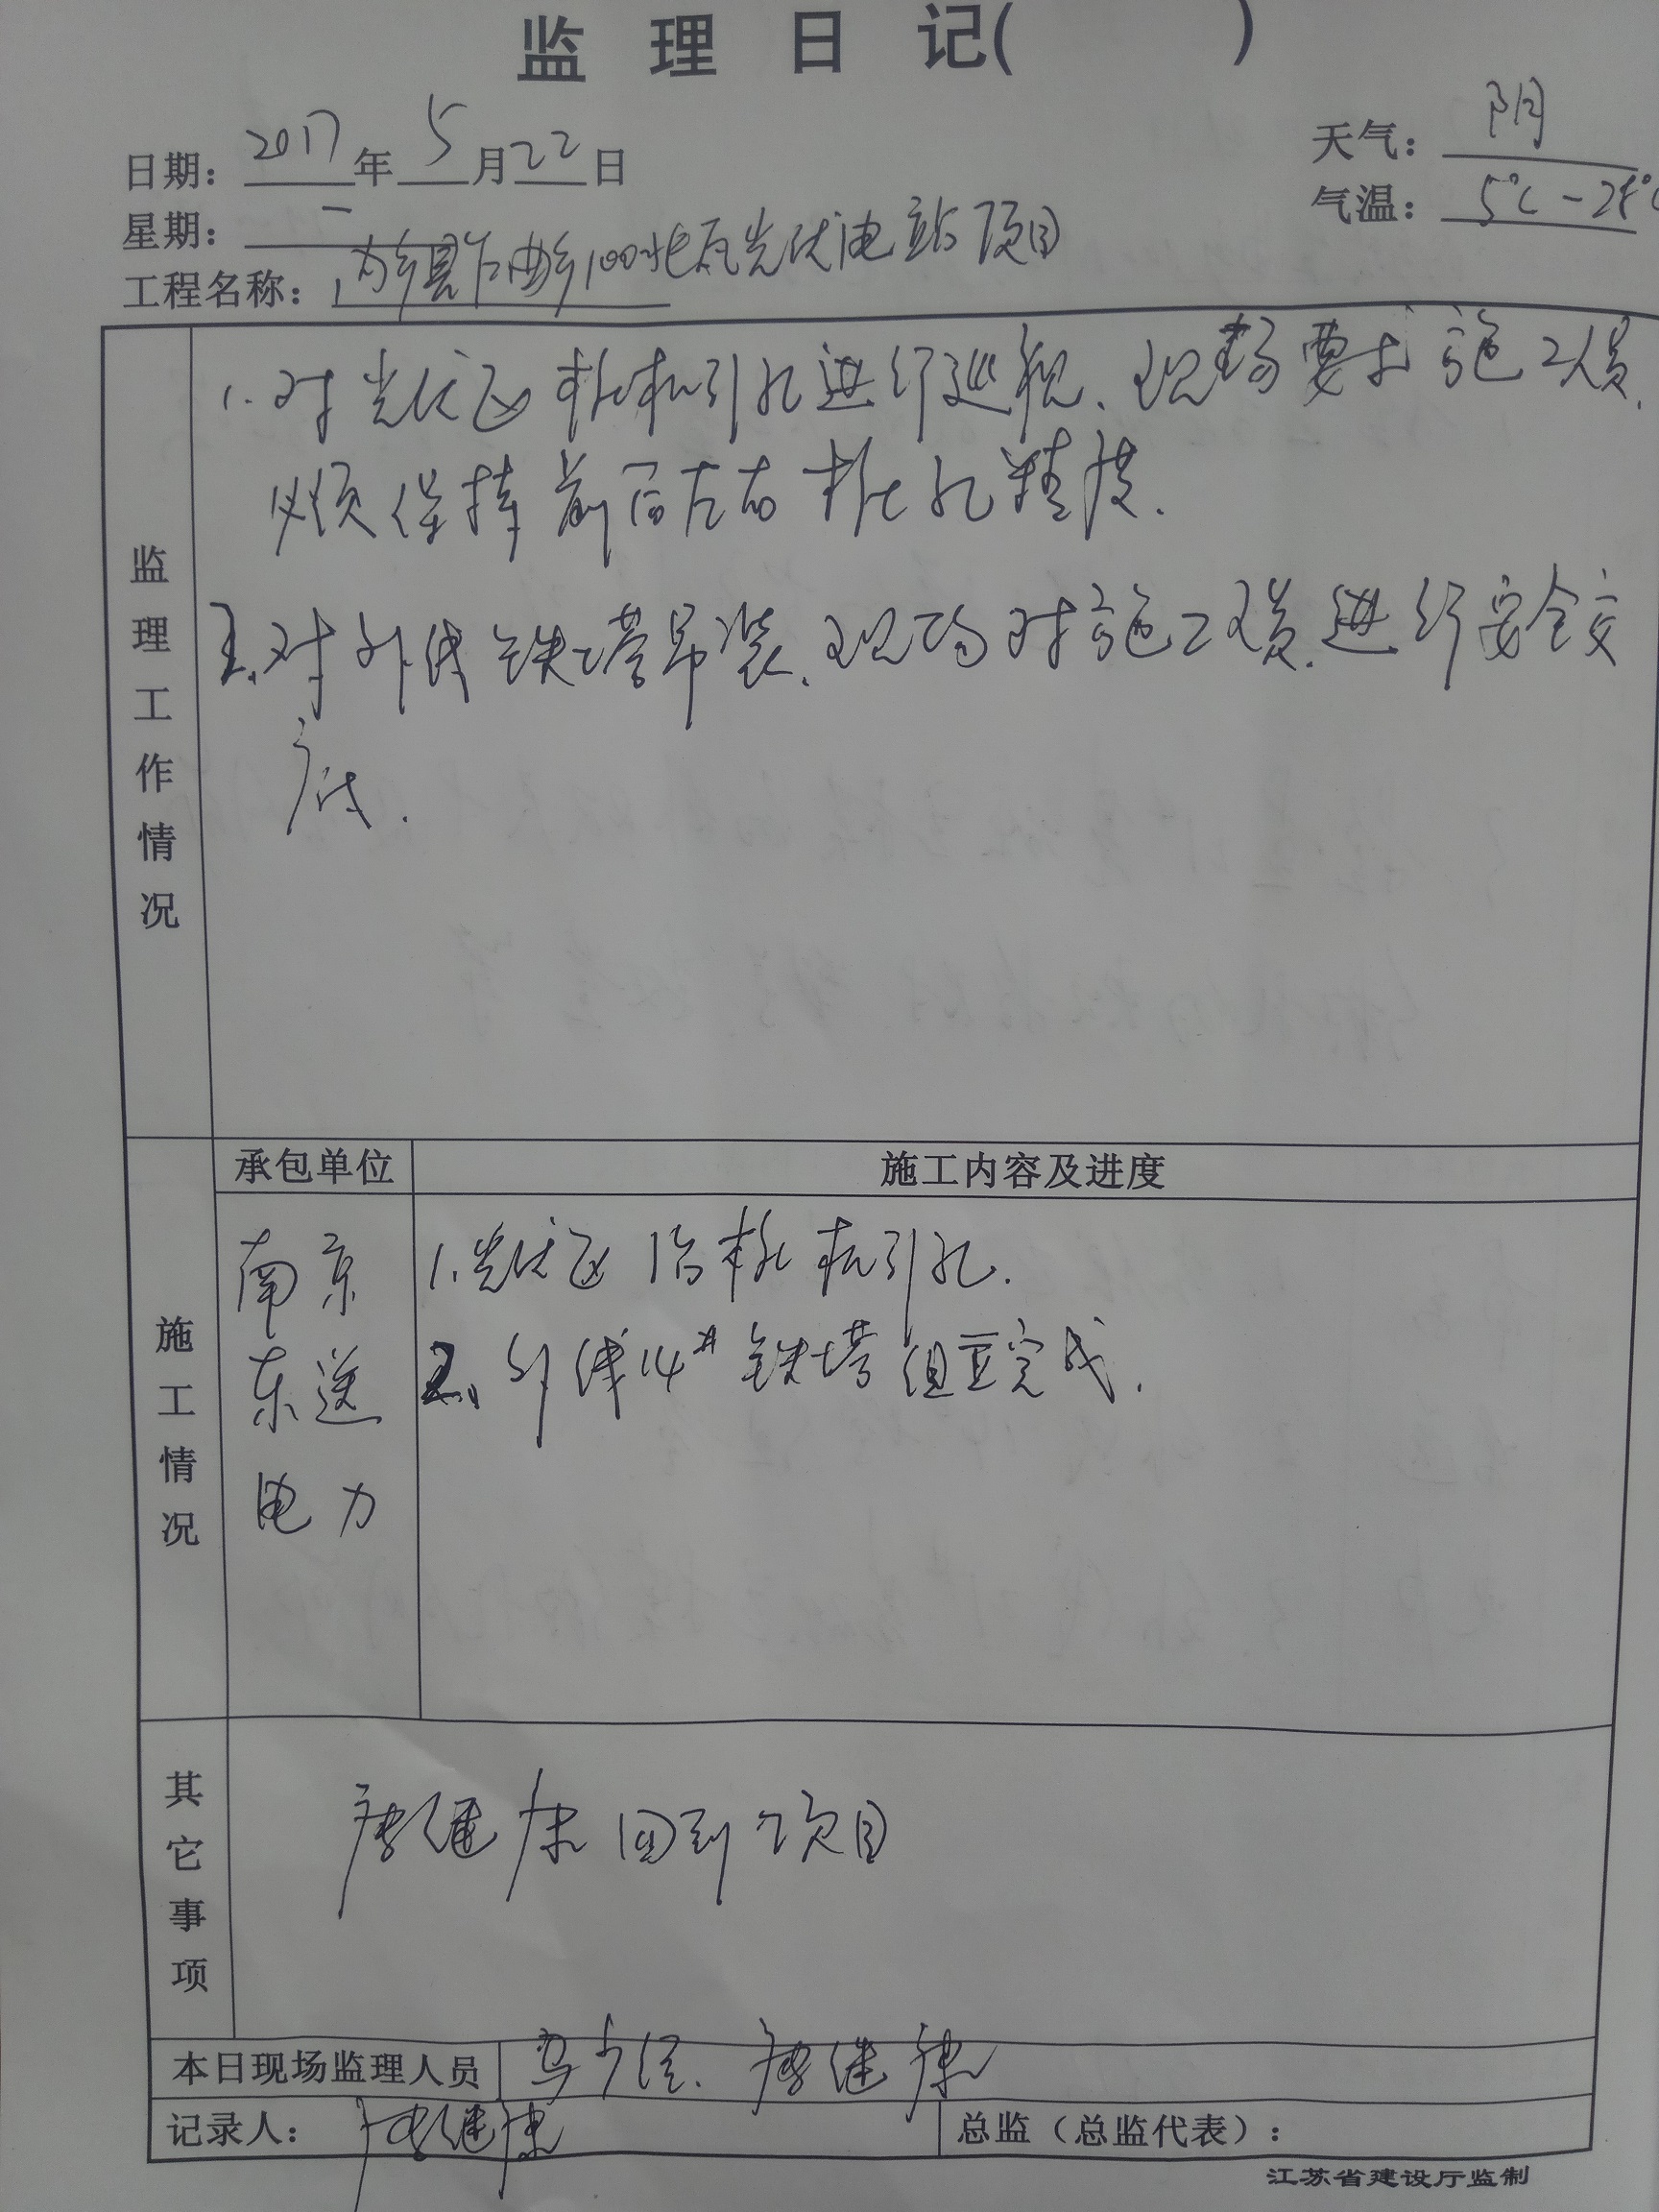 监理日记( )
日期：2017年5月22日
天气：阴
星期：一
气温：5℃-28℃
工程名称：内乡县乍曲乡100兆瓦光伏电站项目
监理工作情况
1.对光伏区桩机引孔进行巡视、现场要求施工人员、
必须保持前后左右桩孔精度.
2.对外线铁塔吊装、现场对施工人员进行安全交
底.
承包单位
施工内容及进度
施工情况
南京
东送
电力
1.光伏区1台桩机引孔.
2、外线14#铁塔组立完成.
其它事项
唐继康回到项目
本日现场监理人员
唐继康
记录人：唐继康
总监（总监代表）：
江苏省建设厅监制